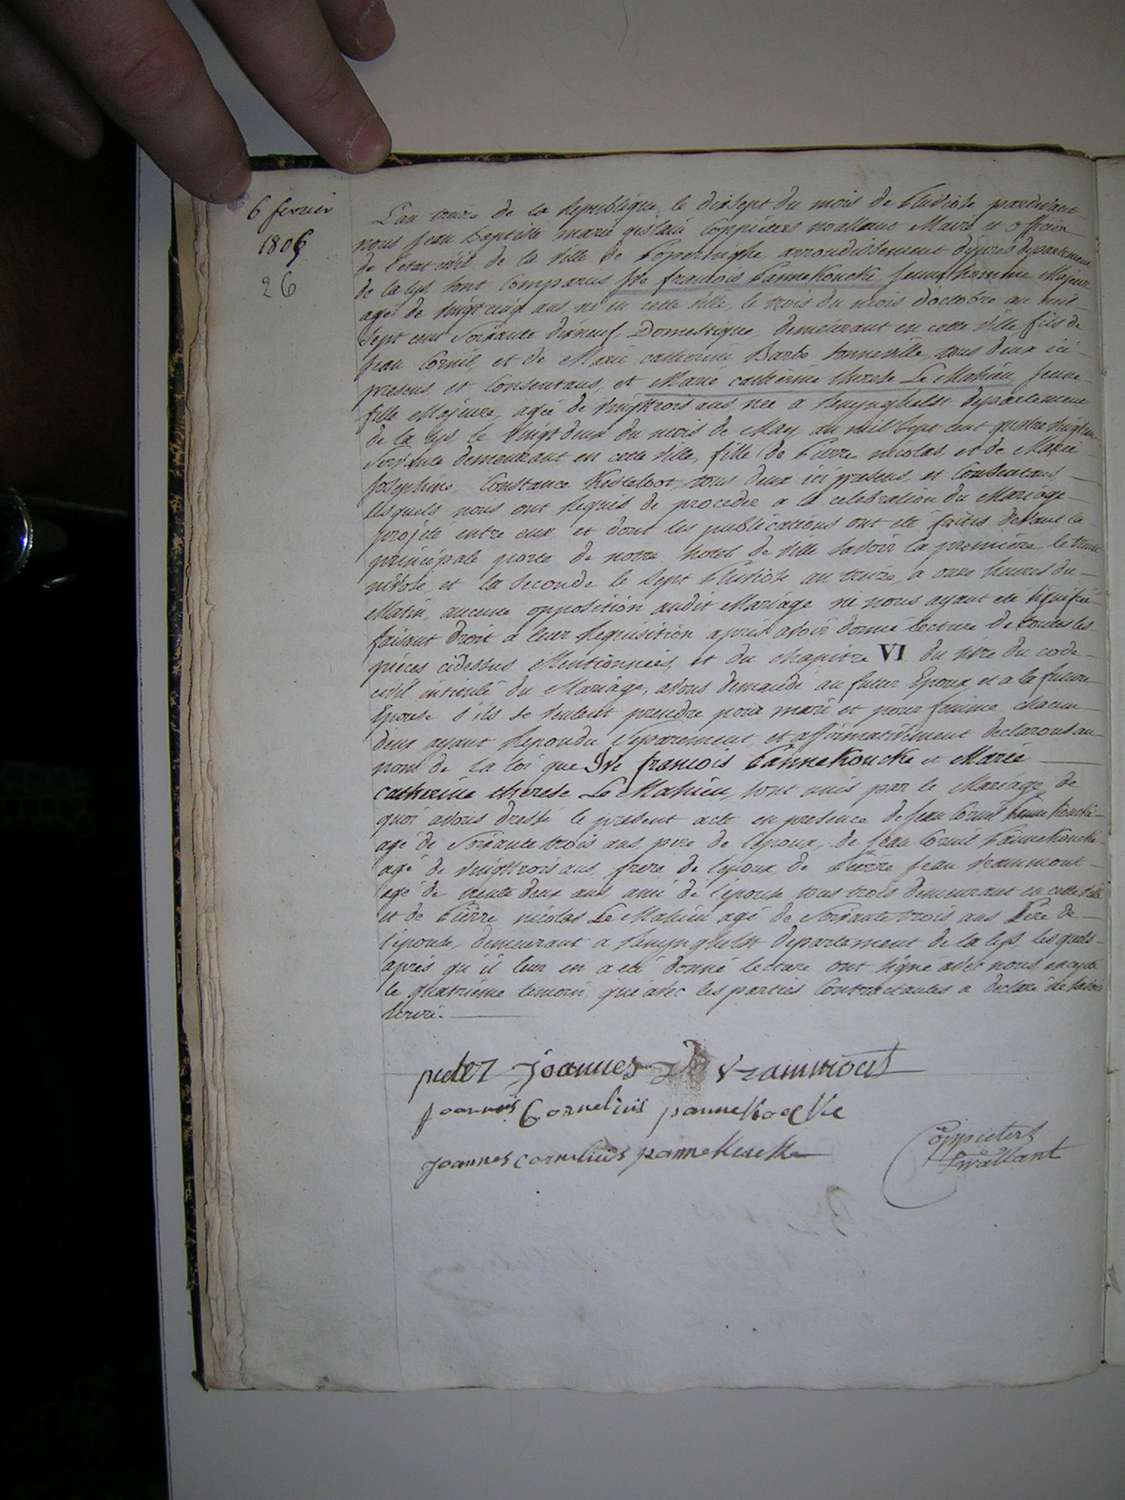 6 fevrier
1805
26
L'an treize de la Republique le dixsept du mois de Pluviose pardevant
nous Jean Baptiste marie gislain Coppieters wallant Maire et officier
de l'etat civil de la ville de Poperinghe arrondissement d'ypres departement
de la lys sont Comparus Jph francois Pannekoucke Jeune homme Majeur
agé de vingtcinq ans né en cette ville le trois du mois d'octobre an mil
sept cent soixante dixneuf Domestique demeurant en cette ville fils de
Jean Cornil, et de Marie catherine Barbe Sonneville tous deux ici
presens et Consentans, et Marie catherine therese Le Mahieu Jeune
fille Majeure, agée de vingttrois ans née a Renynghelst departement
de la lys le vingt deux du mois de May an mil sept cent quatre vingt un
demeurant en cette ville, fille de Pierre nicolas, et de Marie
Josephine Constance Kesteloot tous deux ici presens, et Consentans
lesquels nous ont Requis de proceder a la celebration du Mariage
projeté entre eux et dont les publications ont été faites devant la
principale porte de notre hotel de ville savoir la premiere le trente
nivose et la seconde le sept Pluviose an treize, a onze heures du
Matin, aucune opposition audit Mariage ne nous ayant ete signifiée
faisant droit a leur Requisition apres avoir donné lecture de toutes les
pièces cidessus Mentionnées, et du chapitre VI du titre du code
civil intitulé du Mariage, avons demandé au futur Epoux et a la future
Epouse s'ils se veulent prendre pour mari et pour femme chacun
deux ayant Repondu separément et affirmativement declarons au
nom de la loi que Jph francois Pannekoucke et Marie
catherine therese Le Mahieu, sont unis par le Mariage de
quoi avons dressé le present acte en presence de Jean Cornil Pannekoucke
agé de soixante trois ans, pere de l'epoux, de Jean Cornil Pannekoucke
agé de vingttrois ans, frere de l'epoux de Pierre Jean Vrammont
agé de trente deux ans, ami de l'epouse tous trois demeurant en cette ville
et de Pierre nicolas Le Mahieu agé de soixante trois ans Pere de
l'epouse, demeurant a Renynghelst departement de la lys lesquels
après qu'il leur en a été donné lecture ont signé avec nous excepté
le quatrieme temoin qui avec les parties Contractantes a declaré ne savoir
écrire.
peder Joannes Vrammout
Joannes Cornelius pannekoecke
Joannes cornelius pannekoucke
Coppieters
wallant